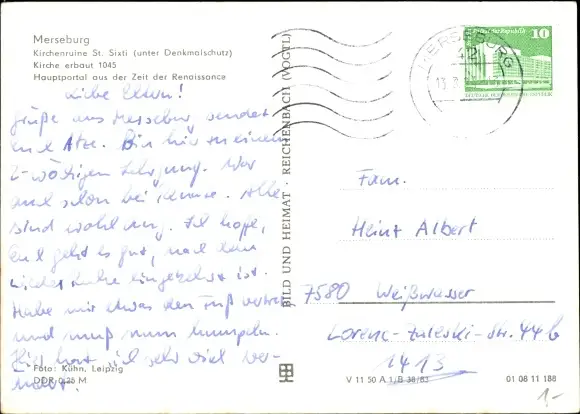 Merseburg
Kirchenruine St. Sixti (unter Denkmalschutz)
Kirche erbaut 1045
Hauptportal aus der Zeit der Renaissance
Liebe Eltern!
Grüße aus Merseburg sendet
euch Bin hier zu einem
2-wöchigen Lehrgang. War
auch schon bei Alle
sind wohl auf. Ich hoffe,
Euch geht es gut, nach dem
wieder Ruhe eingekehrt ist.
Habe mir etwas den Fuß vertreten
und muß nun humpeln.
Hier hat sich sehr viel ver-
Foto: Kühn, Leipzig
DDR 0,25 M
BILD UND HEIMAT · REICHENBACH (VOGTL)
MERSEBURG
42
10
Palast der Republik
Fam.
Heinz Albert
7580 Weißwasser
Str. 44b
1413
V 11 50 A 1/B 38/83
01 08 11 188
1-